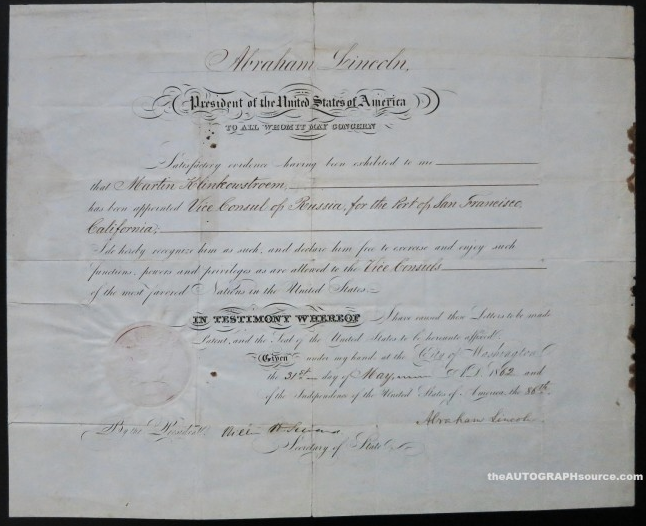 Abraham Lincoln,
President of the United States of America
TO ALL WHOM IT MAY CONCERN
Satisfactory evidence having been exhibited to me
that Martin Klinkowstroem,
has been appointed Vice Consul of Russia, for the Port of San Francisco,
California,
I do hereby recognize him as such, and declare him free to exercise and enjoy such
functions, powers and privileges as are allowed to the Vice Consuls
of the most favored Nations in the United States.
IN TESTIMONY WHEREOF I have caused these Letters to be made
Patent, and the Seal of the United States to be hereunto affixed.
Given under my hand at the City of Washington
the 31st day of May, A.D. 1862 and
of the Independence of the United States of America, the 86th.
Abraham Lincoln
By the President,
William H. Seward
Secretary of State
theAUTOGRAPHsource.com